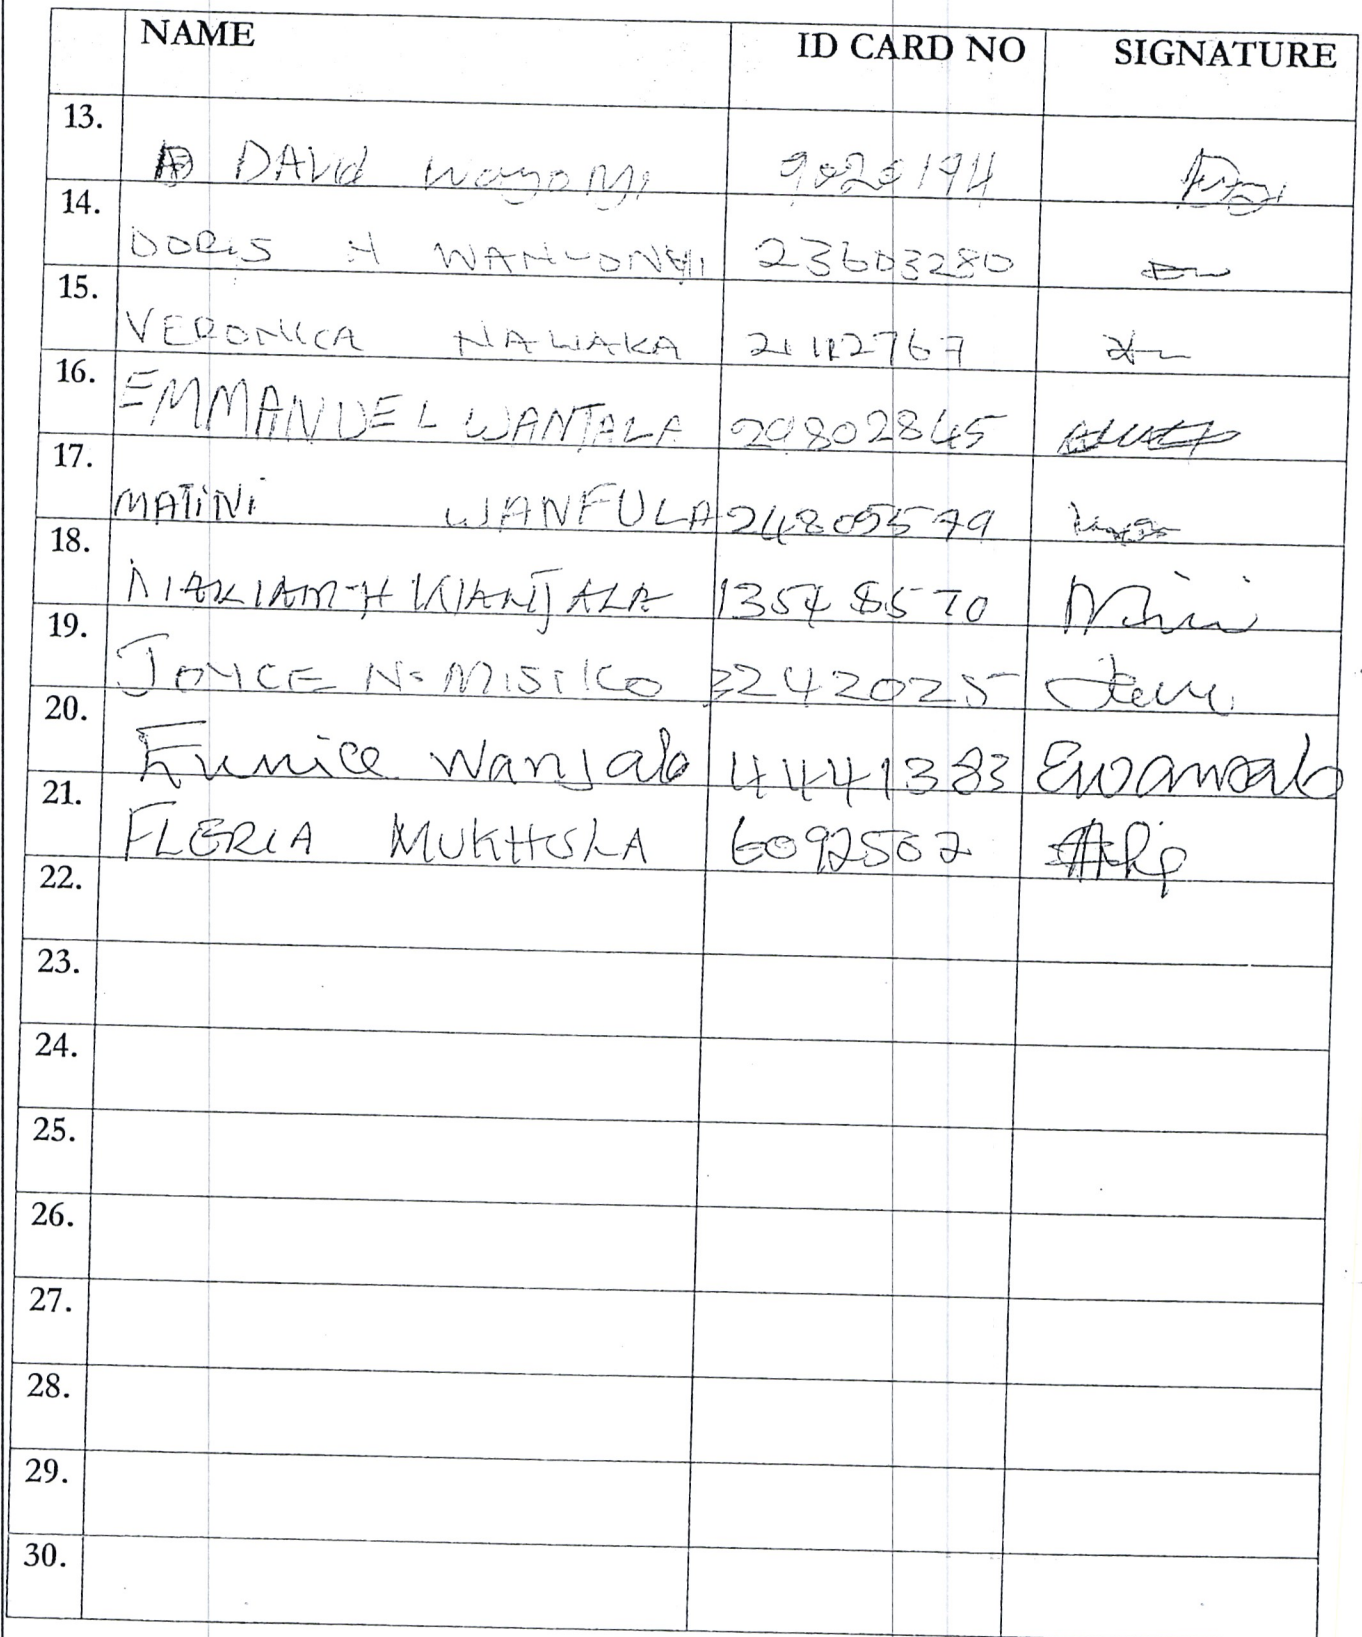 NAME ID CARD NO SIGNATURE
13. DAVId Wayonyi 9020194
14. DORIS N WANYONYI 23603280
15. VERONICA NAWAKA 21112767
16. EMMANUEL WANJALA 20802845
17. MATINI WANFULA 24805579
18. MARIAM H WANJALA 13548570
19. JOYCE N. MISIKO 2242025
20. Eunice Wanjala 4441383 Ewanjala
21. FLERIA MUKHULA 6092502
22.
23.
24.
25.
26.
27.
28.
29.
30.